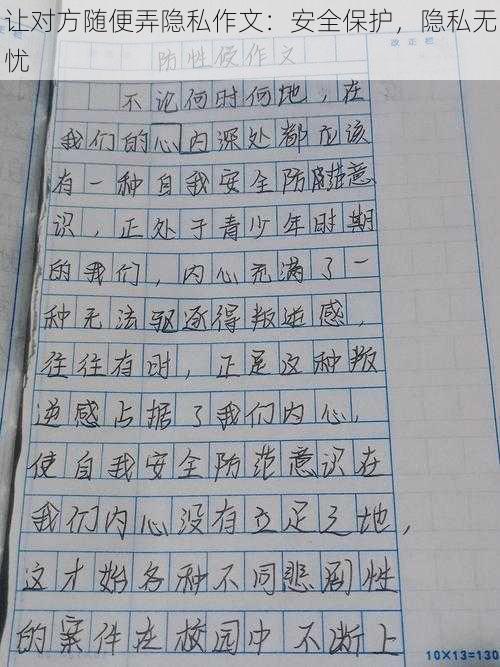 让对方随便弄隐私作文：安全保护，隐私无
忧
防性侵作文
改正栏
不论何时何地，在
我们的心内深处都应该
有一种自我安全防范意
识，正处于青少年时期
的我们，内心充满了一
种无法驱逐得叛逆感，
往往有时，正是这种叛
逆感占据了我们内心，
使自我安全防范意识在
我们内心没有立足之地，
这才始各种不同悲剧性
的案件在校园中不断上
10×13=130